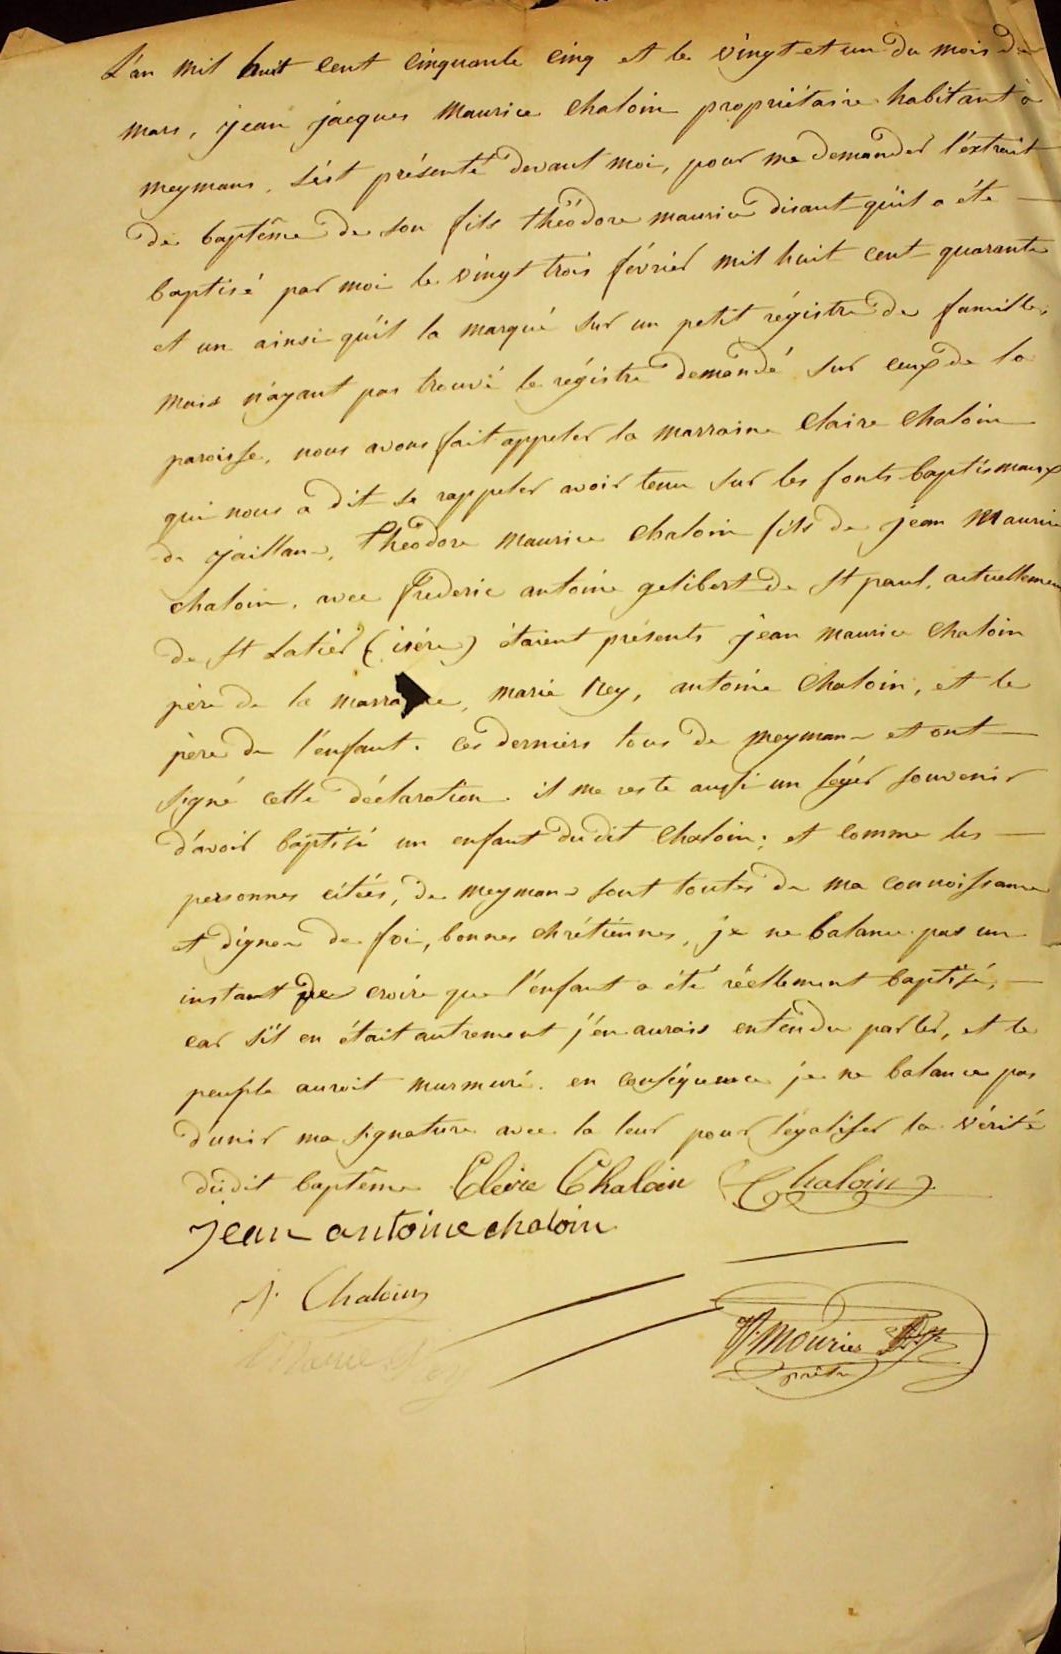 L'an mil huit cent cinquante cinq et le vingt et un du mois de
mars, jean jacques maurice chaloin propriétaire habitant à
meymans, s'est présenté devant moi, pour me demander l'éxtrait
de baptême de son fils théodore maurice disant qu'il a été
baptisé par moi le vingt trois février mil huit cent quarante
et un ainsi qu'il la marqué sur un petit régistre de famille,
mais n'ayant pas trouvé le régistre demandé sur ceux de la
paroisse, nous avons fait appeler la marraine Claire Chaloin
qui nous a dit se rappeler avoir tenu sur les fonts baptismaux
de jaillans, théodore maurice chaloin fils de jean maurice
chaloin, avec frederic antoine gelibert de St paul, actuellement
de St Latier (isére) étaient présents jean maurice chaloin
père de la marraine, marie Rey, antoine Chaloin, et le
père de l'enfant. ces derniers tous de meymans et ont
signé cette déclaration. il me reste aussi un léger souvenir
d'avoir baptisé un enfant du dit chaloin; et comme les
personnes citées, de meymans sont toutes de ma connoissance
et dignes de foi, bonnes chrétiennes, je ne balance pas un
instant de croire que l'enfant a été réellement baptisé,
car s'il en était autrement j'en aurais entendu parler, et le
peuple auroit murmuré. en conséquence je ne balance pas
d'unir ma signature avec la leur pour légaliser la vérité
du dit baptême Claire Chaloin Chaloin
jean antoine chaloin
Chaloin
Marie Rey
Mourier
prêtre